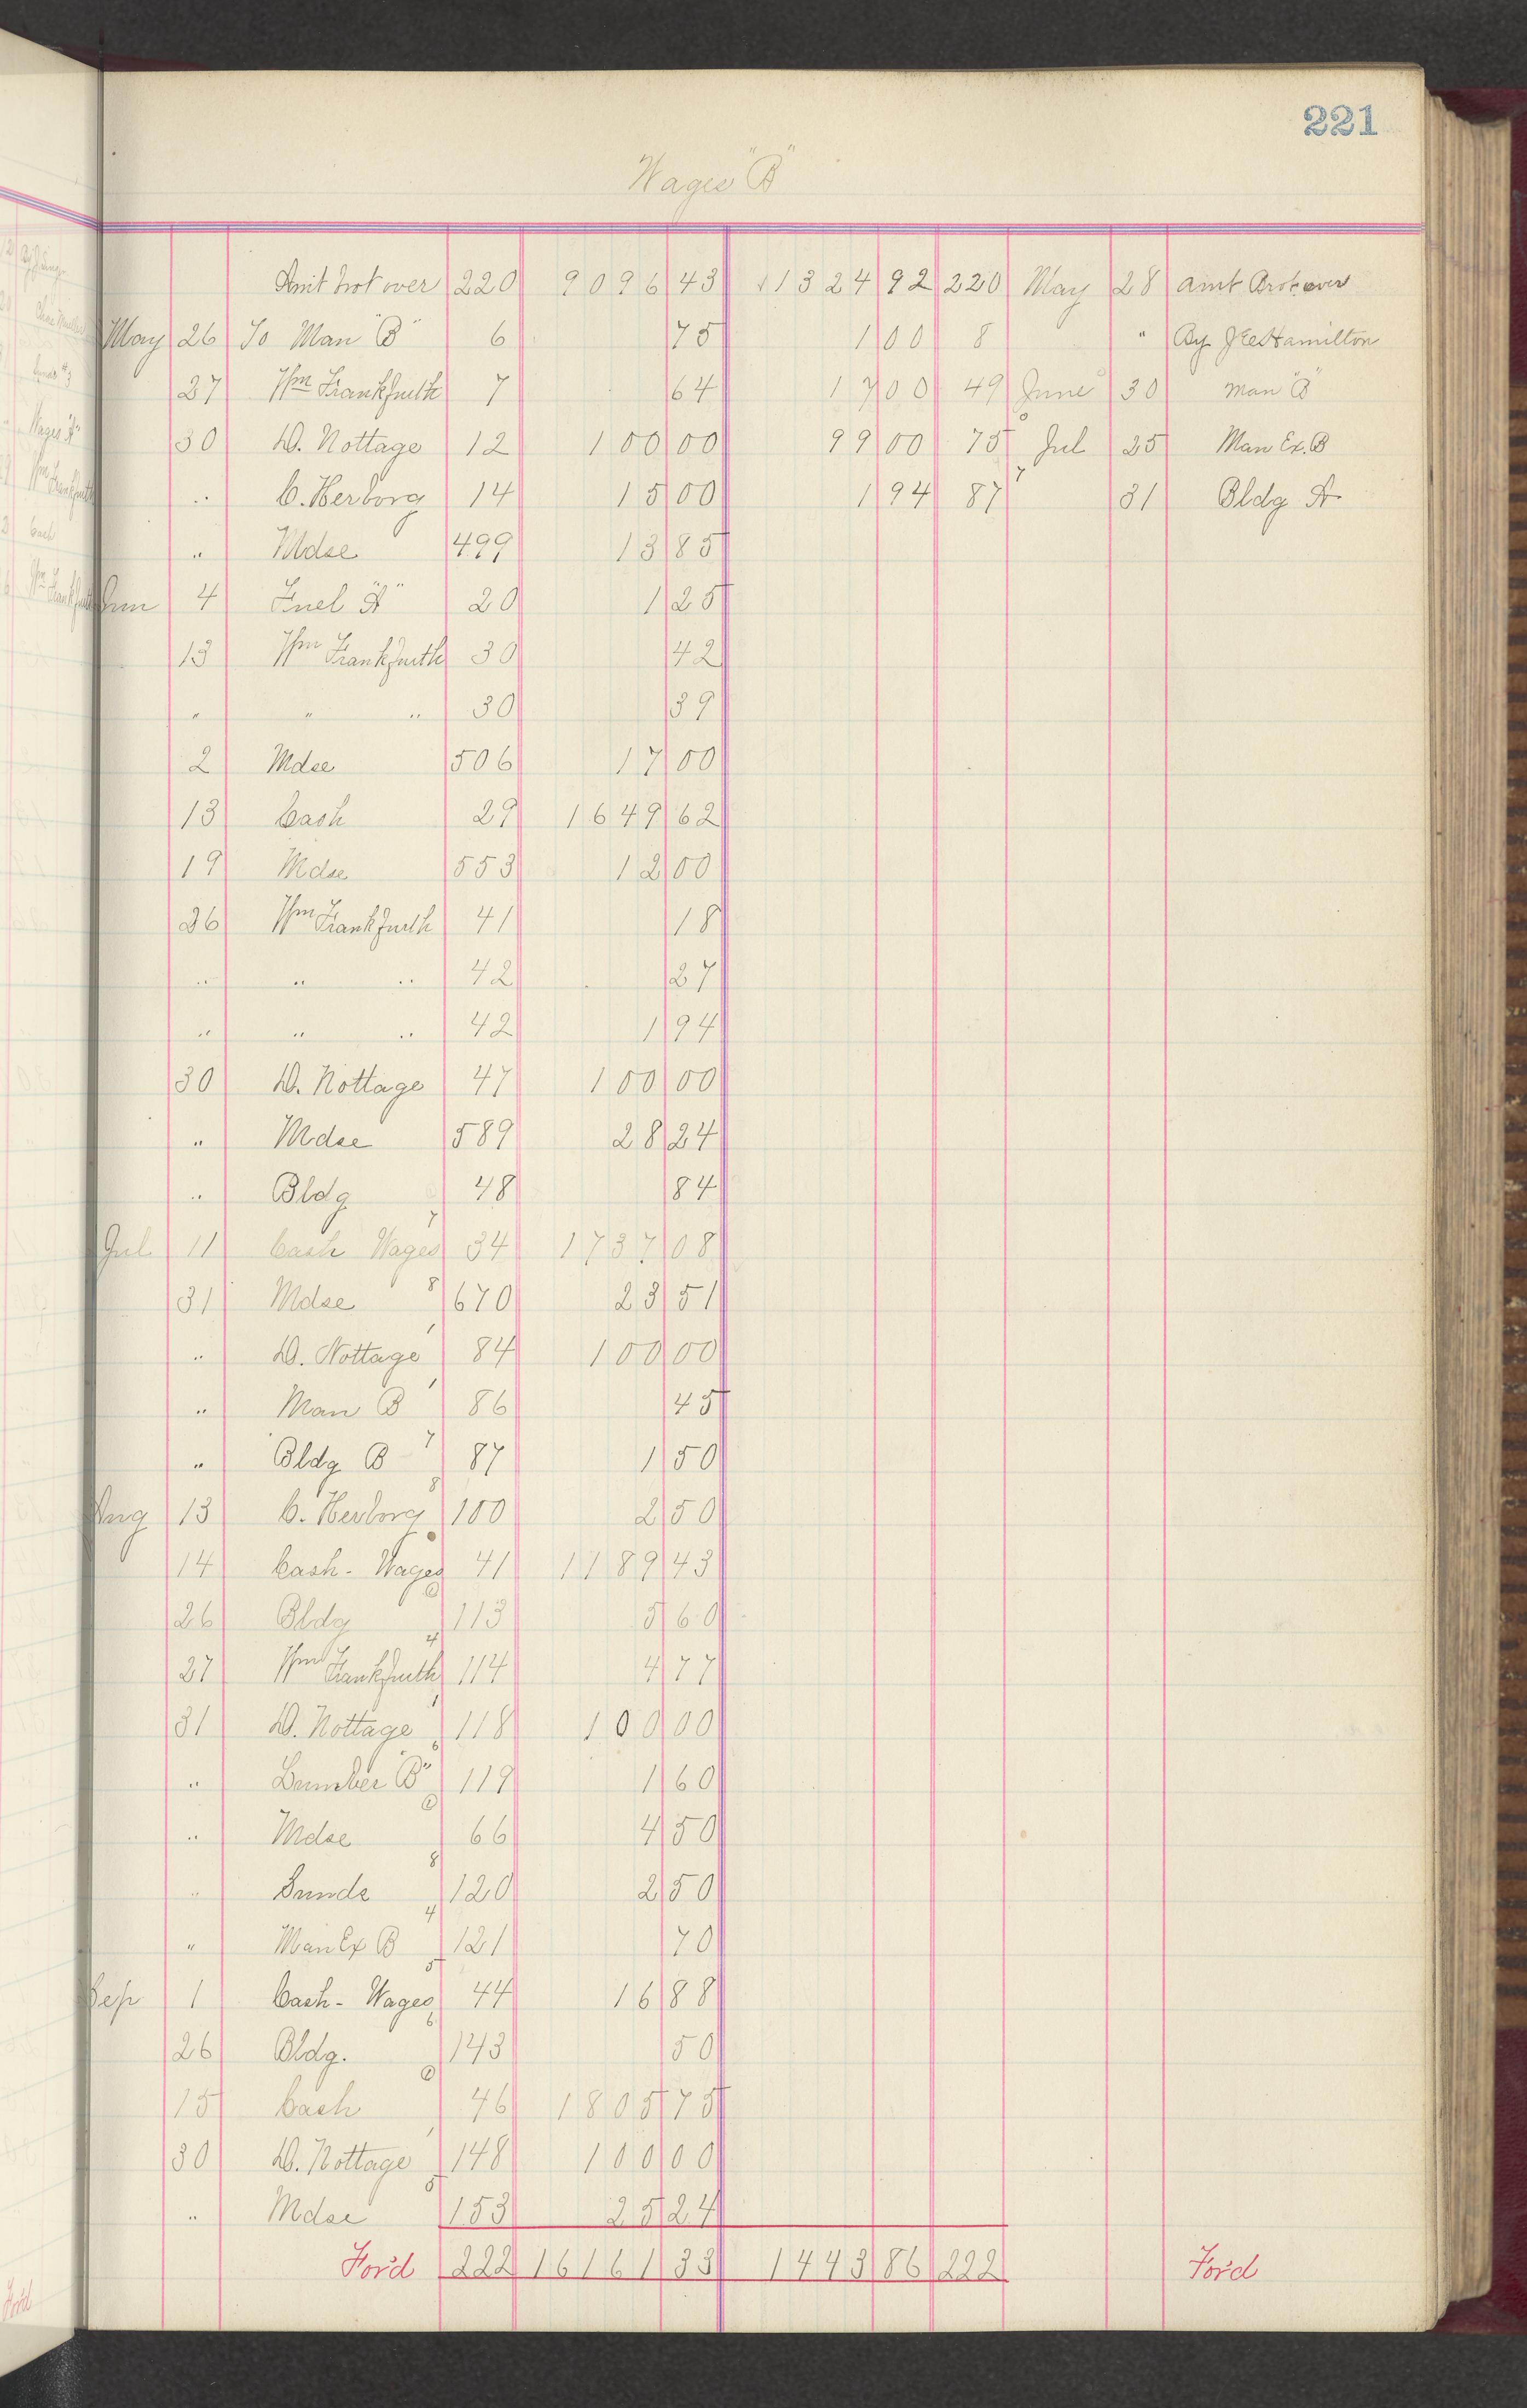 221
Wages "B"
Amt brot over 220 9096 43 1324 92 220 May 28 Amt Brot over
May 26 To Man "B" 6 75 1 00 8 " By Hamilton
27 Wm Frankfurth 7 64 17 00 49 June 30 Man "B"
30 D. Nottage 12 100 00 99 00 75 Jul 25 Man Ex. B
" C. Herborg 14 15 00 1 94 87 31 Bldg A
" Mdse 499 13 85
Jun 4 Fuel "A" 20 1 25
13 Wm Frankfurth 30 42
" " " 30 39
2 Mdse 506 17 00
13 Cash 29 1649 62
19 Mdse 553 12 00
26 Wm Frankfurth 41 18
" " " 42 27
" " " 42 1 94
30 D. Nottage 47 100 00
" Mdse 589 28 24
" Bldg 48 84
Jul 11 Cash Wages 34 1737 08
31 Mdse 670 23 51
" D. Nottage 84 100 00
" Man B 86 45
" Bldg B 87 1 50
Aug 13 C. Herborg 100 2 50
14 Cash - Wages 41 1189 43
26 Bldg 113 5 60
27 Wm Frankfurth 114 4 77
31 D. Nottage 118 100 00
" Lumber "B" 119 1 60
" Mdse 66 4 50
" Sunds 120 2 50
" Man Ex B 121 70
Sep 1 Cash - Wages 44 16 88
26 Bldg. 143 50
15 Cash 46 1805 75
30 D. Nottage 148 100 00
" Mdse 153 25 24
For'd 222 16161 33 1443 86 222 For'd